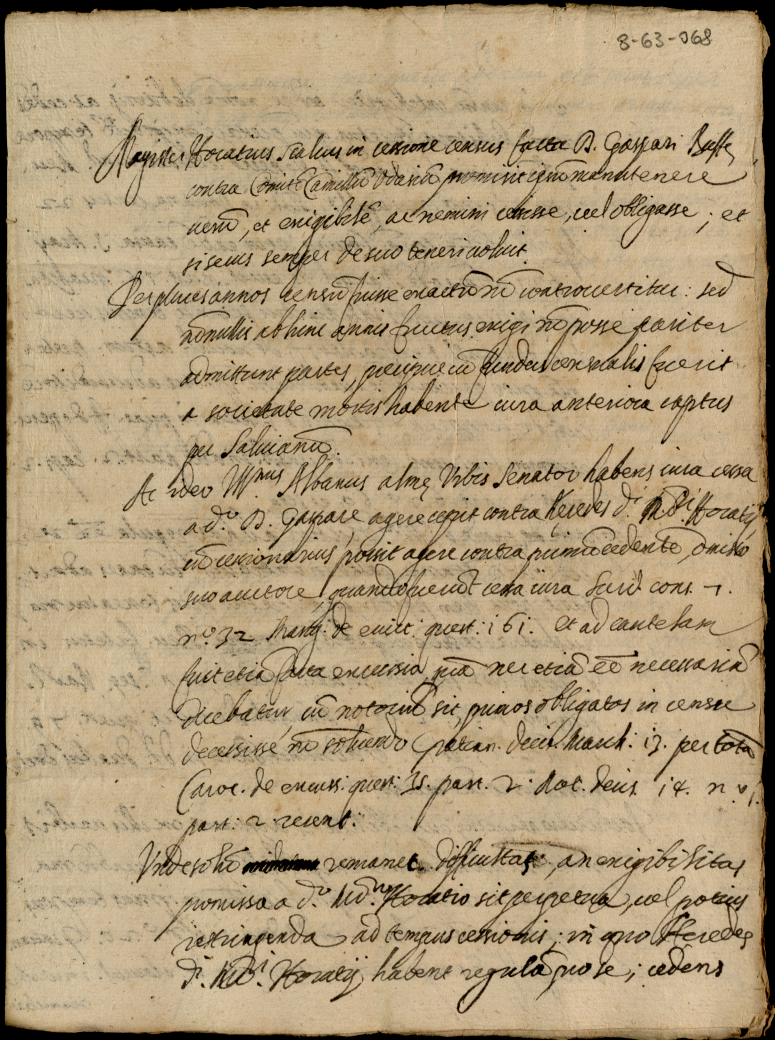 8-63-068
Magister Horatius Saluius in cessione census facta D. Gaspari
contra Comitē Camillū promisit ipsū manutenere
uerū, et exigibilē, ac nemini cessisse, uel obligasse ; et
si secus semper de suo teneri uoluit.
Per plures annos censū fuisse exactū nō controuertitur : sed
nōnullis abhinc annis fructus exigi nō posse pariter
admittunt partes, precipue cū fundus censualis fuerit
a societate mortis habente iura anteriora captus
per Saluianū.
Ac ideo Illmus Albanus almę Vrbis Senator habens iura cessa
a d.º D. Gaspare agere cepit contra Heredes d.i Horatij
cū cessionarius possit agere contra primū cedentē, omisso
suo auctore, quando fuerūt cessa iura Surd. cons. 7.
nº 32 de euict. quest. 161. et ad cautelam
fuit etiā facta excussio, nec etiā eē necessariā
dicebatur, cū notoriū sit, primos obligatos in censu
decessisse nō soluendo decis. March. 13. per totā
Caroc. de excuss. quest. 35. part. 2. Rot. decis. 14. n.º 1.
part. 2 recent.
Vnde solū remanet difficultas, an exigibilitas
promissa a d.º Horatio sit perpetua, uel potius
restringenda ad tempus cessionis ; in quo Heredes
d.i Horatij habent regulā pro se ; cedens